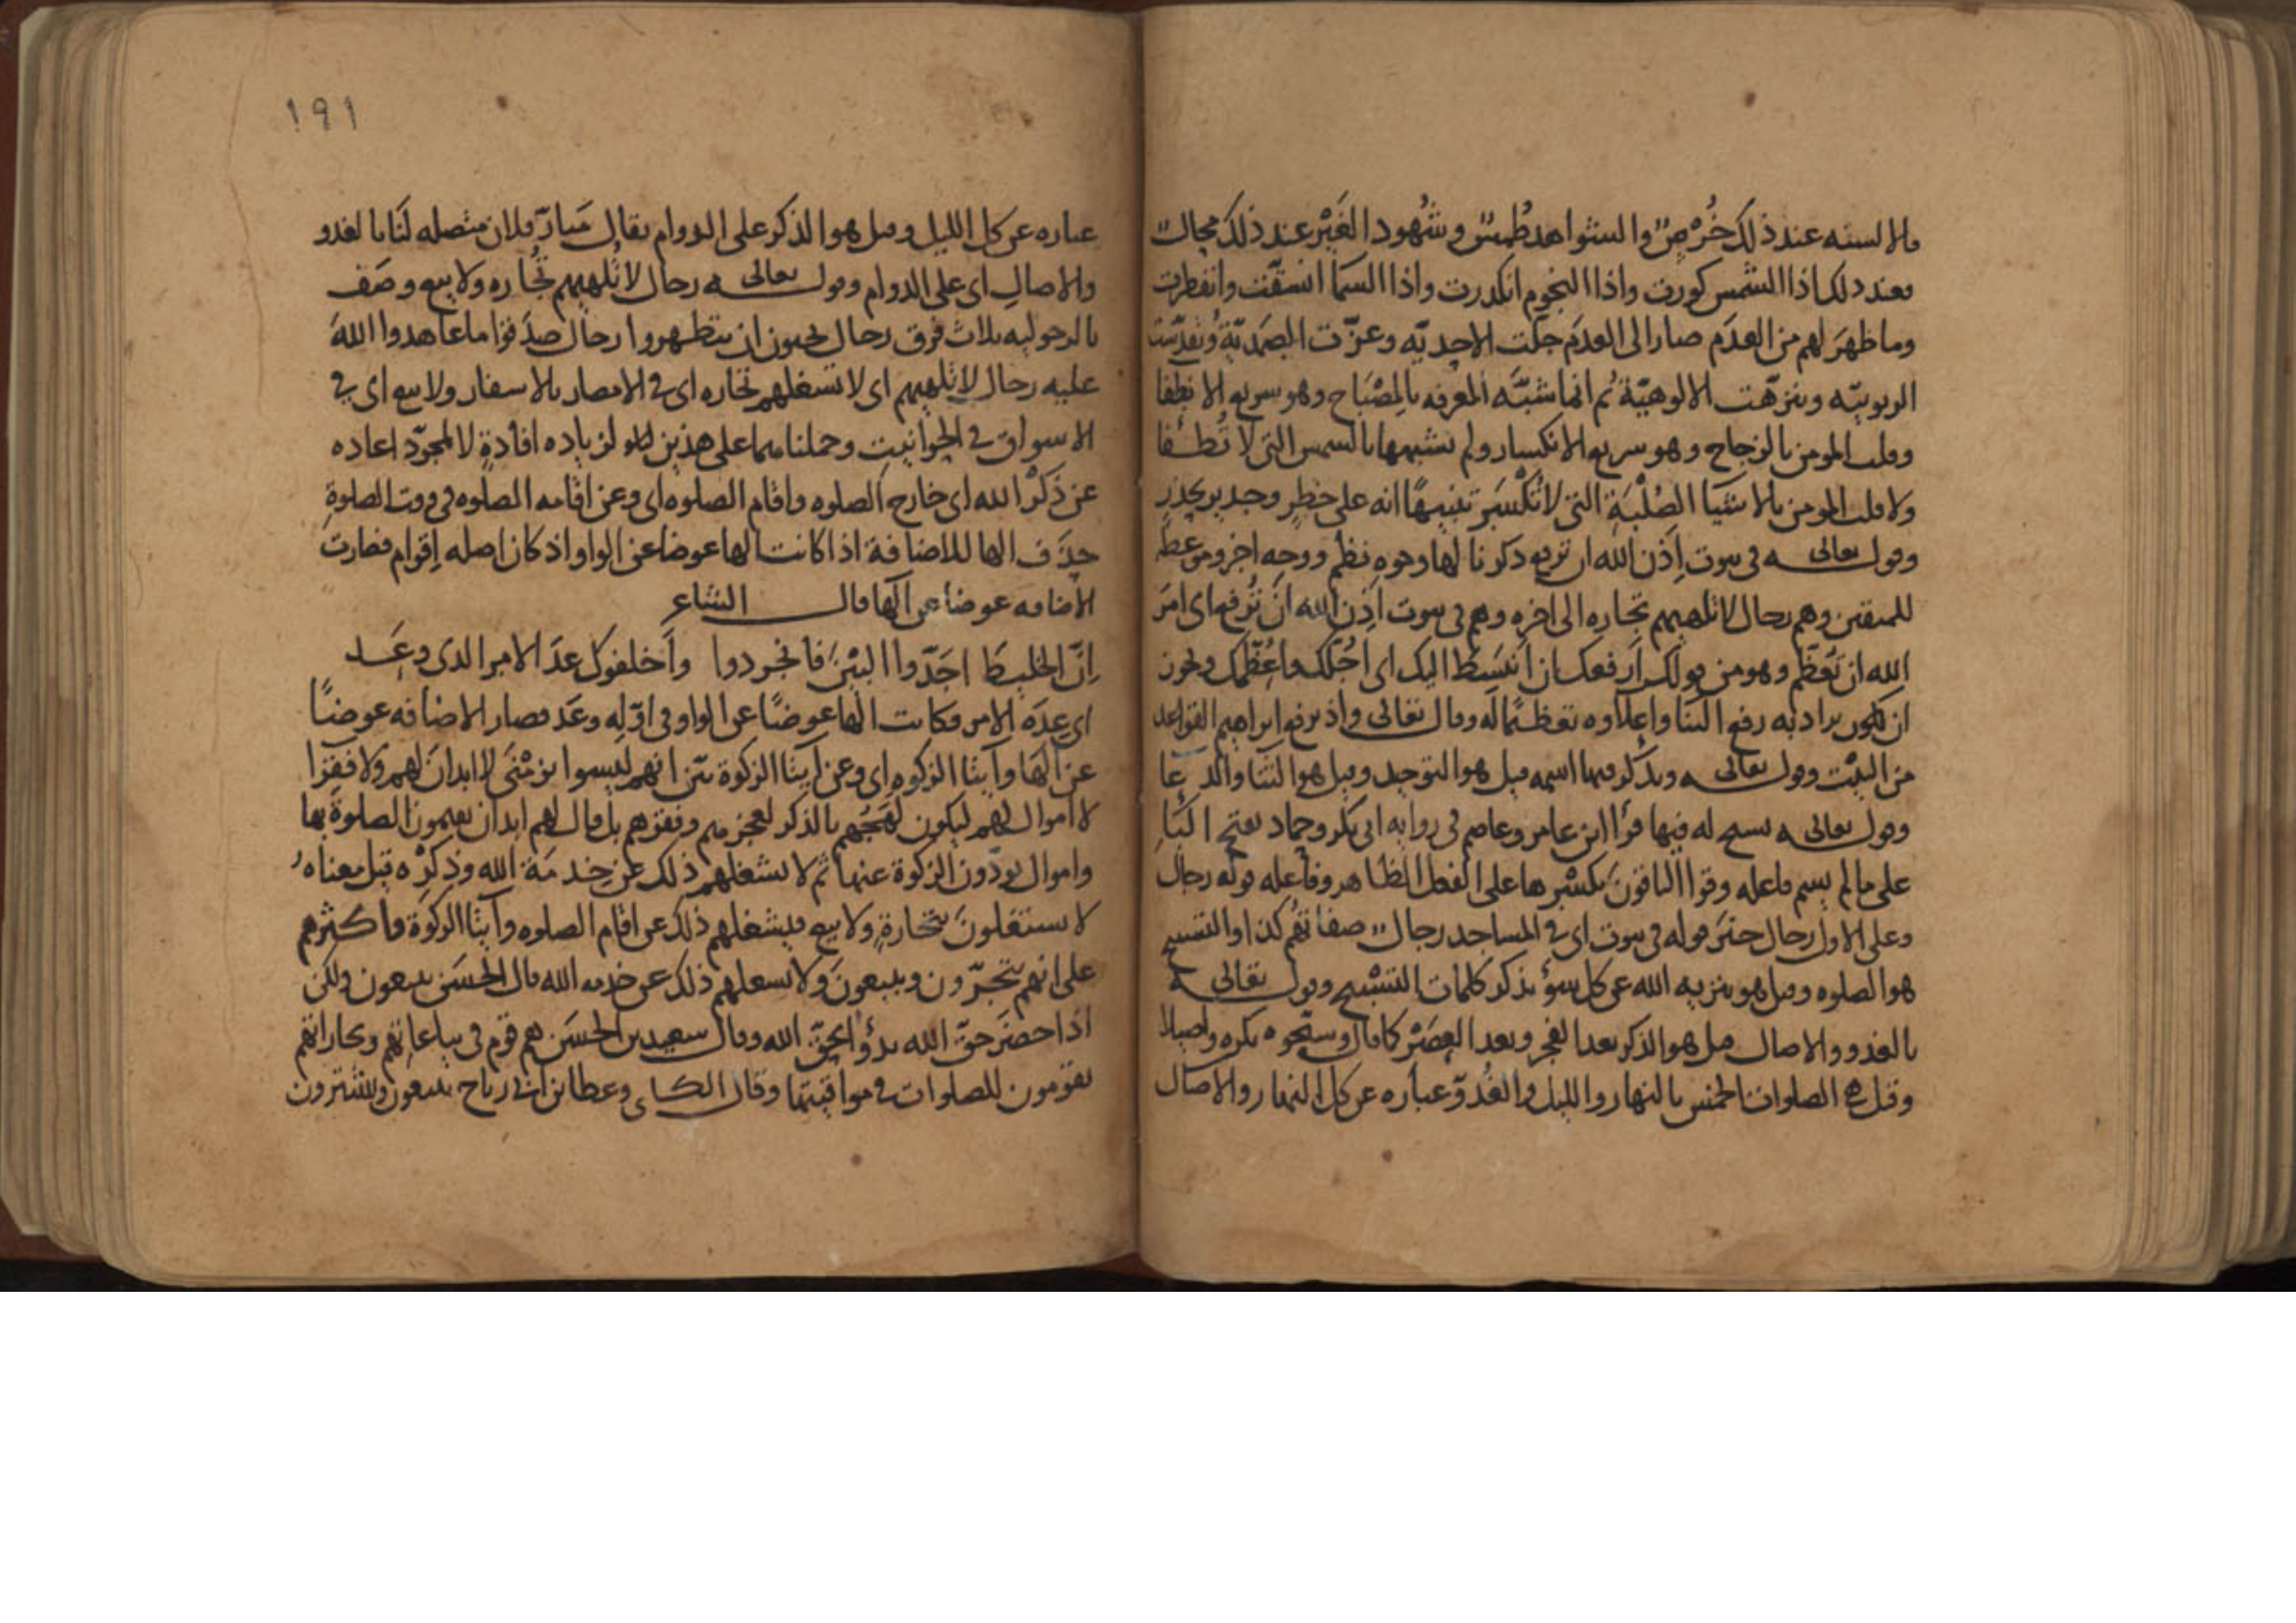 والالسنه عند ذلك خُرْسٌ والشواهد طُمسٌ وشُهود الغَيْر عند ذلك محالٌ
فعند ذلك اذا الشمس كورت واذا النجوم انكدرت واذا السما انشقّت وانفطرت
وما ظهرَ لهم من العدَم صار الى العدَم جلّت الاحديّه وعزّت الصمَديّة وتقدّست
الربوبيّه وتنزّهت الالوهيّة ثم انما شبَّه المعرفه بالمِصْبَاح وهو سريع الانطفا
وقلب المومن بالزجاج وهو سريع الانكسار ولم يشبهها بالشمس التي لا تُطـفا
ولا قلب المومن بالاشيَا الصُلْبَة التي لا تُكْسَر تنبيهًا انه على خطرٍ وجدير بحذر
وقوله تعالى في بيوت اَذِن الله ان ترفع ذكرنا لها وجوه نظم ووجه اخر ومن عظه
للمتقين وهم رجال لا تلهيهم تجاره الى اخره وهم في بيوت اَذِن الله انْ تُرفع اى امَر
الله ان تُعَظّم وهو من قولك اَرفعك ان اَنبَسط اليك اى اُجُلّك واُعَظّمك ويجوز
ان يكون يراد به رفع البنَا واعِلاوه تعظيمًا له وقال تعالى واذ يرفع ابراهيم القواعد
من البيْت وقوله تعالى ويذكر فيها اسمه قيل هو التوحيد وقيل هو الثنا والدعا
وقوله تعالى يسبح له فيها قرأ ابن عامر وعاصم في روايه ابي بكر وحماد بفتح البَا
على ما لم يسم فاعله وقرا الباقونَ بكسْرها على الفعل الظاهر وفاعله قوله رجال
وعلى الاول رجال خبَر قوله في بيوت اى في المساجد رجالٌ صفاتهُم كذا والتسبيح
هو الصلوه وقيل هو تنزيه الله عن كل سوءٍ بذكر كلمات التسْبيح وقوله تعالى
بالغدو والاصال قيل هو الذكر بعد الفجر وبعد العصَرْ كما قال وسبّحوه بكره واصيلا
وقيل هى الصلوات الخمس بالنهار والليل فالغُدوّ عباره عن كل النهار والاصال
١٩١
عباره عن كل الليل وقيل هو الذكر على الدوام يقال مَبارّ فلان متصله لنَا بالغدو
والاصالِ اى على الدوام وقوله تعالى رجال لا تُلهيهم تجُاره ولا بيع وصَف
بالرجوليه ثلاث فرق رجال يحبون ان يتطهروا رجال صدَقوا ما عاهدوا اللهَ
عليه رجال لا تلهيهم اى لا تشغلهم تجاره اى في الامصار بالاسفار ولا بيع اى في
الاسواق في الحوانيتِ وحملناهما على هذين لزياده افادةٍ لا لمجرّد اعاده
عن ذكْر الله اى خارج الصلوه واقام الصلوه اى وعن اقامه الصلوه في وقت الصلوةِ
حذَف الها للاضافة اذا كانت الها عوضا عن الواو اذ كان اصله اِقوام فصارت
الاضافه عوضا عن الها قال الشاعر
اِنَّ الخليط اجَدّوا البيْنَ فانجردوا وأَخلفوك عدَ الامر الذي وعَـدوا
اى عدَه الامر فكانت الها عوضًا عن الواو في اوّله وعَد فصار الاضافه عوضًا
عن الهَا وايتا الزكوه اى وعن ايتا الزكوة بيّن انهم ليسوا بزمْنَى لا ابدانَ لهم ولا فقرا
لا اموال لهم ليكون لهَجُهم بالذكر لعجزهم وفقرهم بل قال لهم ابدان يقيمون الصلوة بها
واموال يودّون الزكوة عنها ثم لا يشغلهم ذلك عن خِدمَة الله وذِكرْه قيل معناهُ
لا يستقلونَ بتجارةٍ ولا بيع فيشغلهم ذلك عن اقام الصلوه وايتا الزكوة واكثرهم
على انهم يتجرّون ويبيعونَ ولا يشغلهم ذلك عن خدمه الله قال الحسَن يبيعون ولكن
اذا حضرَ حقّ الله بدؤا بحقّ الله وقال سعيد بن الحسَن هم قوم في بياعاتهم وتجاراتهم
يقومون للصلوات في مواقيتها وقال الكلبي وعطا بن ابي رباح يبيعون ويشترون